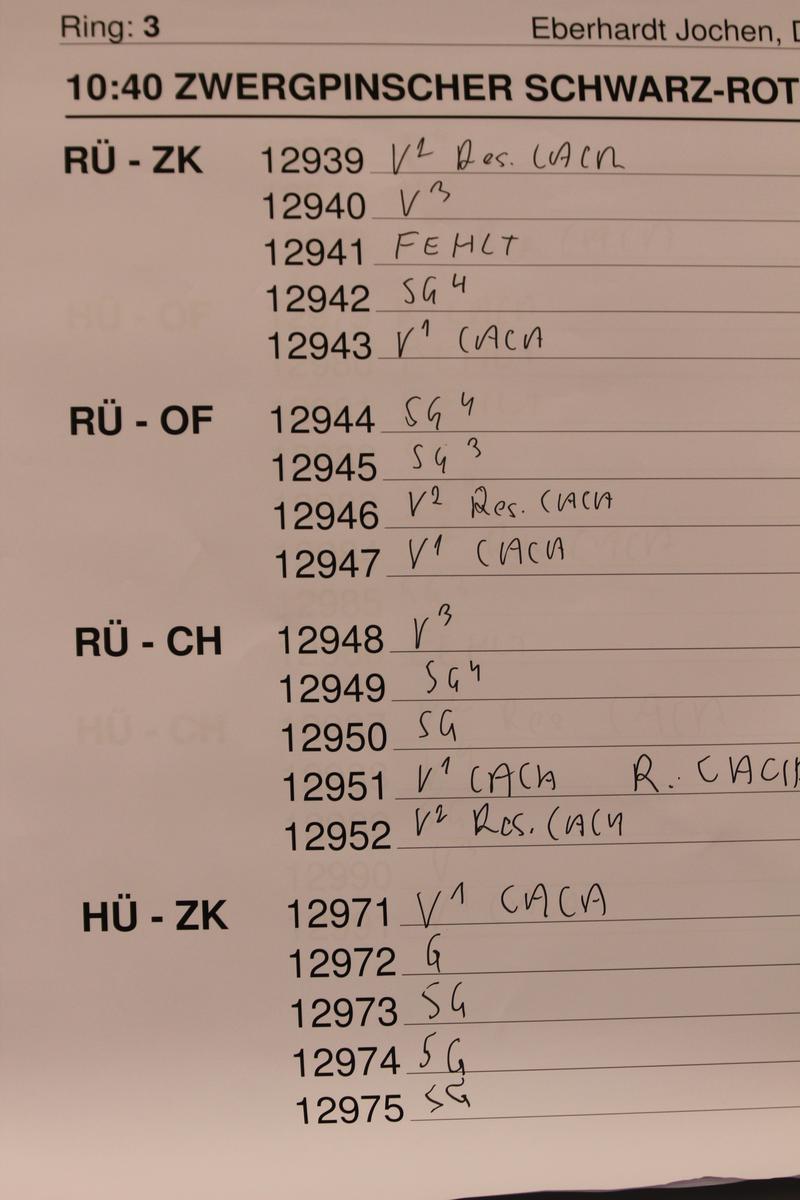 Ring: 3 Eberhardt Jochen, D
10:40 ZWERGPINSCHER SCHWARZ-ROT
RÜ - ZK 12939 V2 Res. CACA
12940 V3
12941 FEHLT
12942 SG 4
12943 V1 CACA
RÜ - OF 12944 SG 4
12945 SG 3
12946 V2 Res. CACA
12947 V1 CACA
RÜ - CH 12948 V3
12949 SG4
12950 SG
12951 V1 CACA R. CACI
12952 V2 Res. CACA
HÜ - ZK 12971 V1 CACA
12972 G
12973 SG
12974 SG
12975 SG